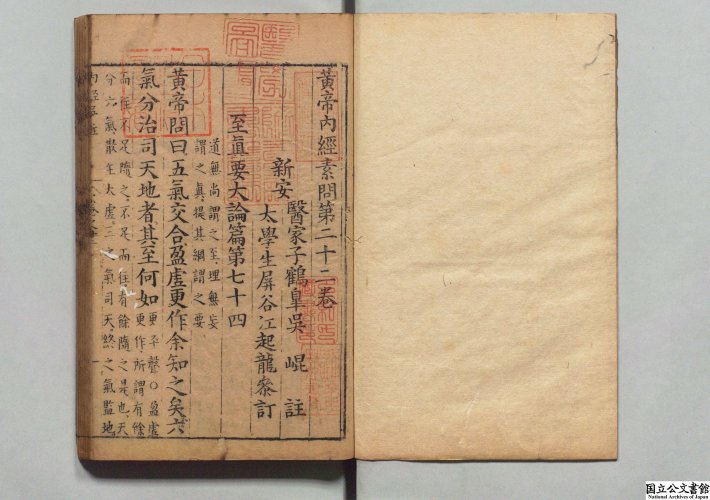 黃帝內經素問第二十二卷
新安
醫家子鶴臯吳 崐 註
太學生屏谷江起龍叅訂
至眞要大論篇第七十四
道無尚謂之至理無妄
謂之眞提其綱謂之要
黃帝問曰五氣交合盈虛更作余知之矣六
氣分治司天地者其至何如
更平聲○盈虛
更作所謂有餘
而往不足隨之不足而往有餘隨之是也天
分六氣散在太虛三之氣司天終之氣監地
国立公文書館
National Archives of Japan